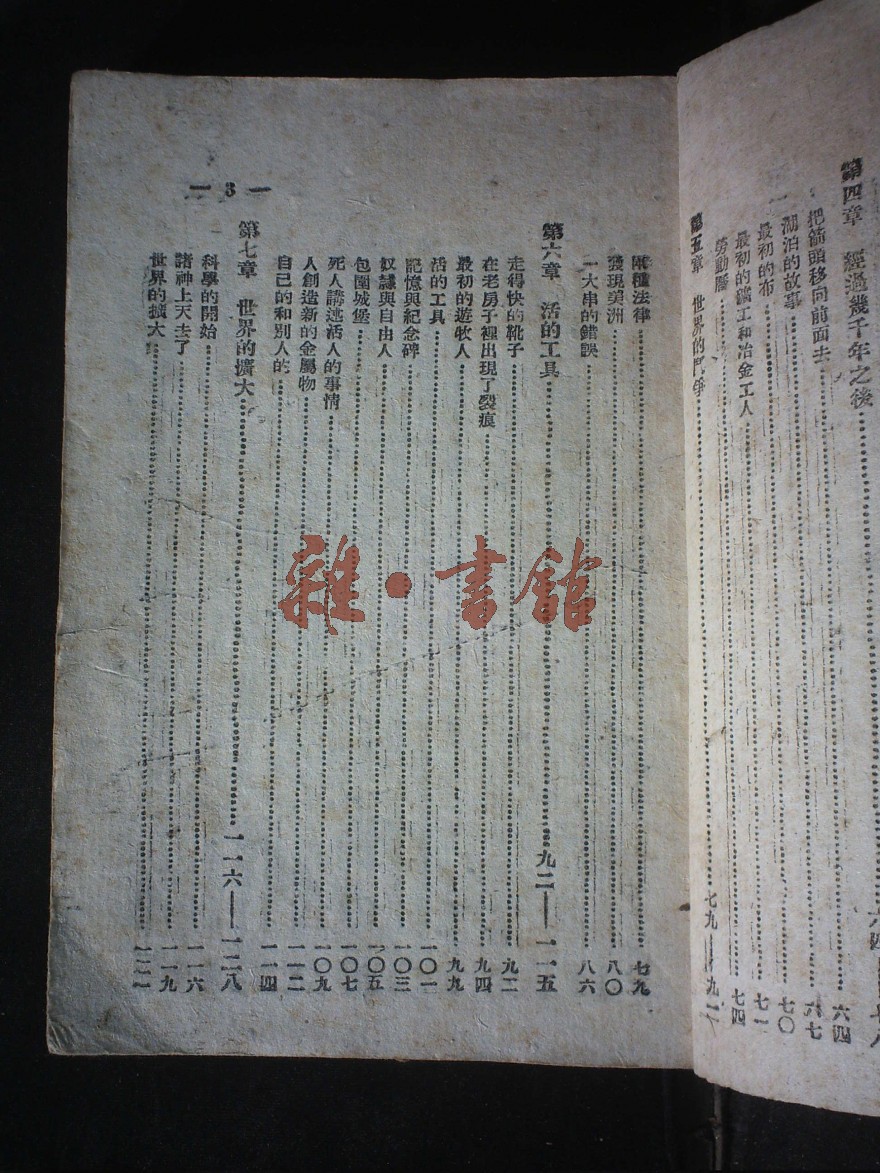 第四章 經過幾千年之後
把箭頭移向前面去……六四
湖泊的故事……六七
最初的布……七〇
最初的鑛工和冶金工人……七一
勞動曆……七四
第五章 世界的鬥爭……七九——九一
兩種法律……七九
發現美洲……八〇
一大串的錯誤……八六
第六章 活的工具……九二——一一五
走得快的靴子……九二
在老房子裡出現了裂痕……九四
最初的遊牧人……九九
活的工具……一〇一
記憶與紀念碑……一〇三
奴隷與自由人……一〇五
包圍城堡……一〇七
死人講述活人的事情……一〇九
人創造新的金屬物……一一二
自己的和別人的……一一四
第七章 世界的擴大……一一六——一二八
科學的開始……一一六
諸神上天去了……一一九
世界的擴大……一二一
— 3 —
雜·書館